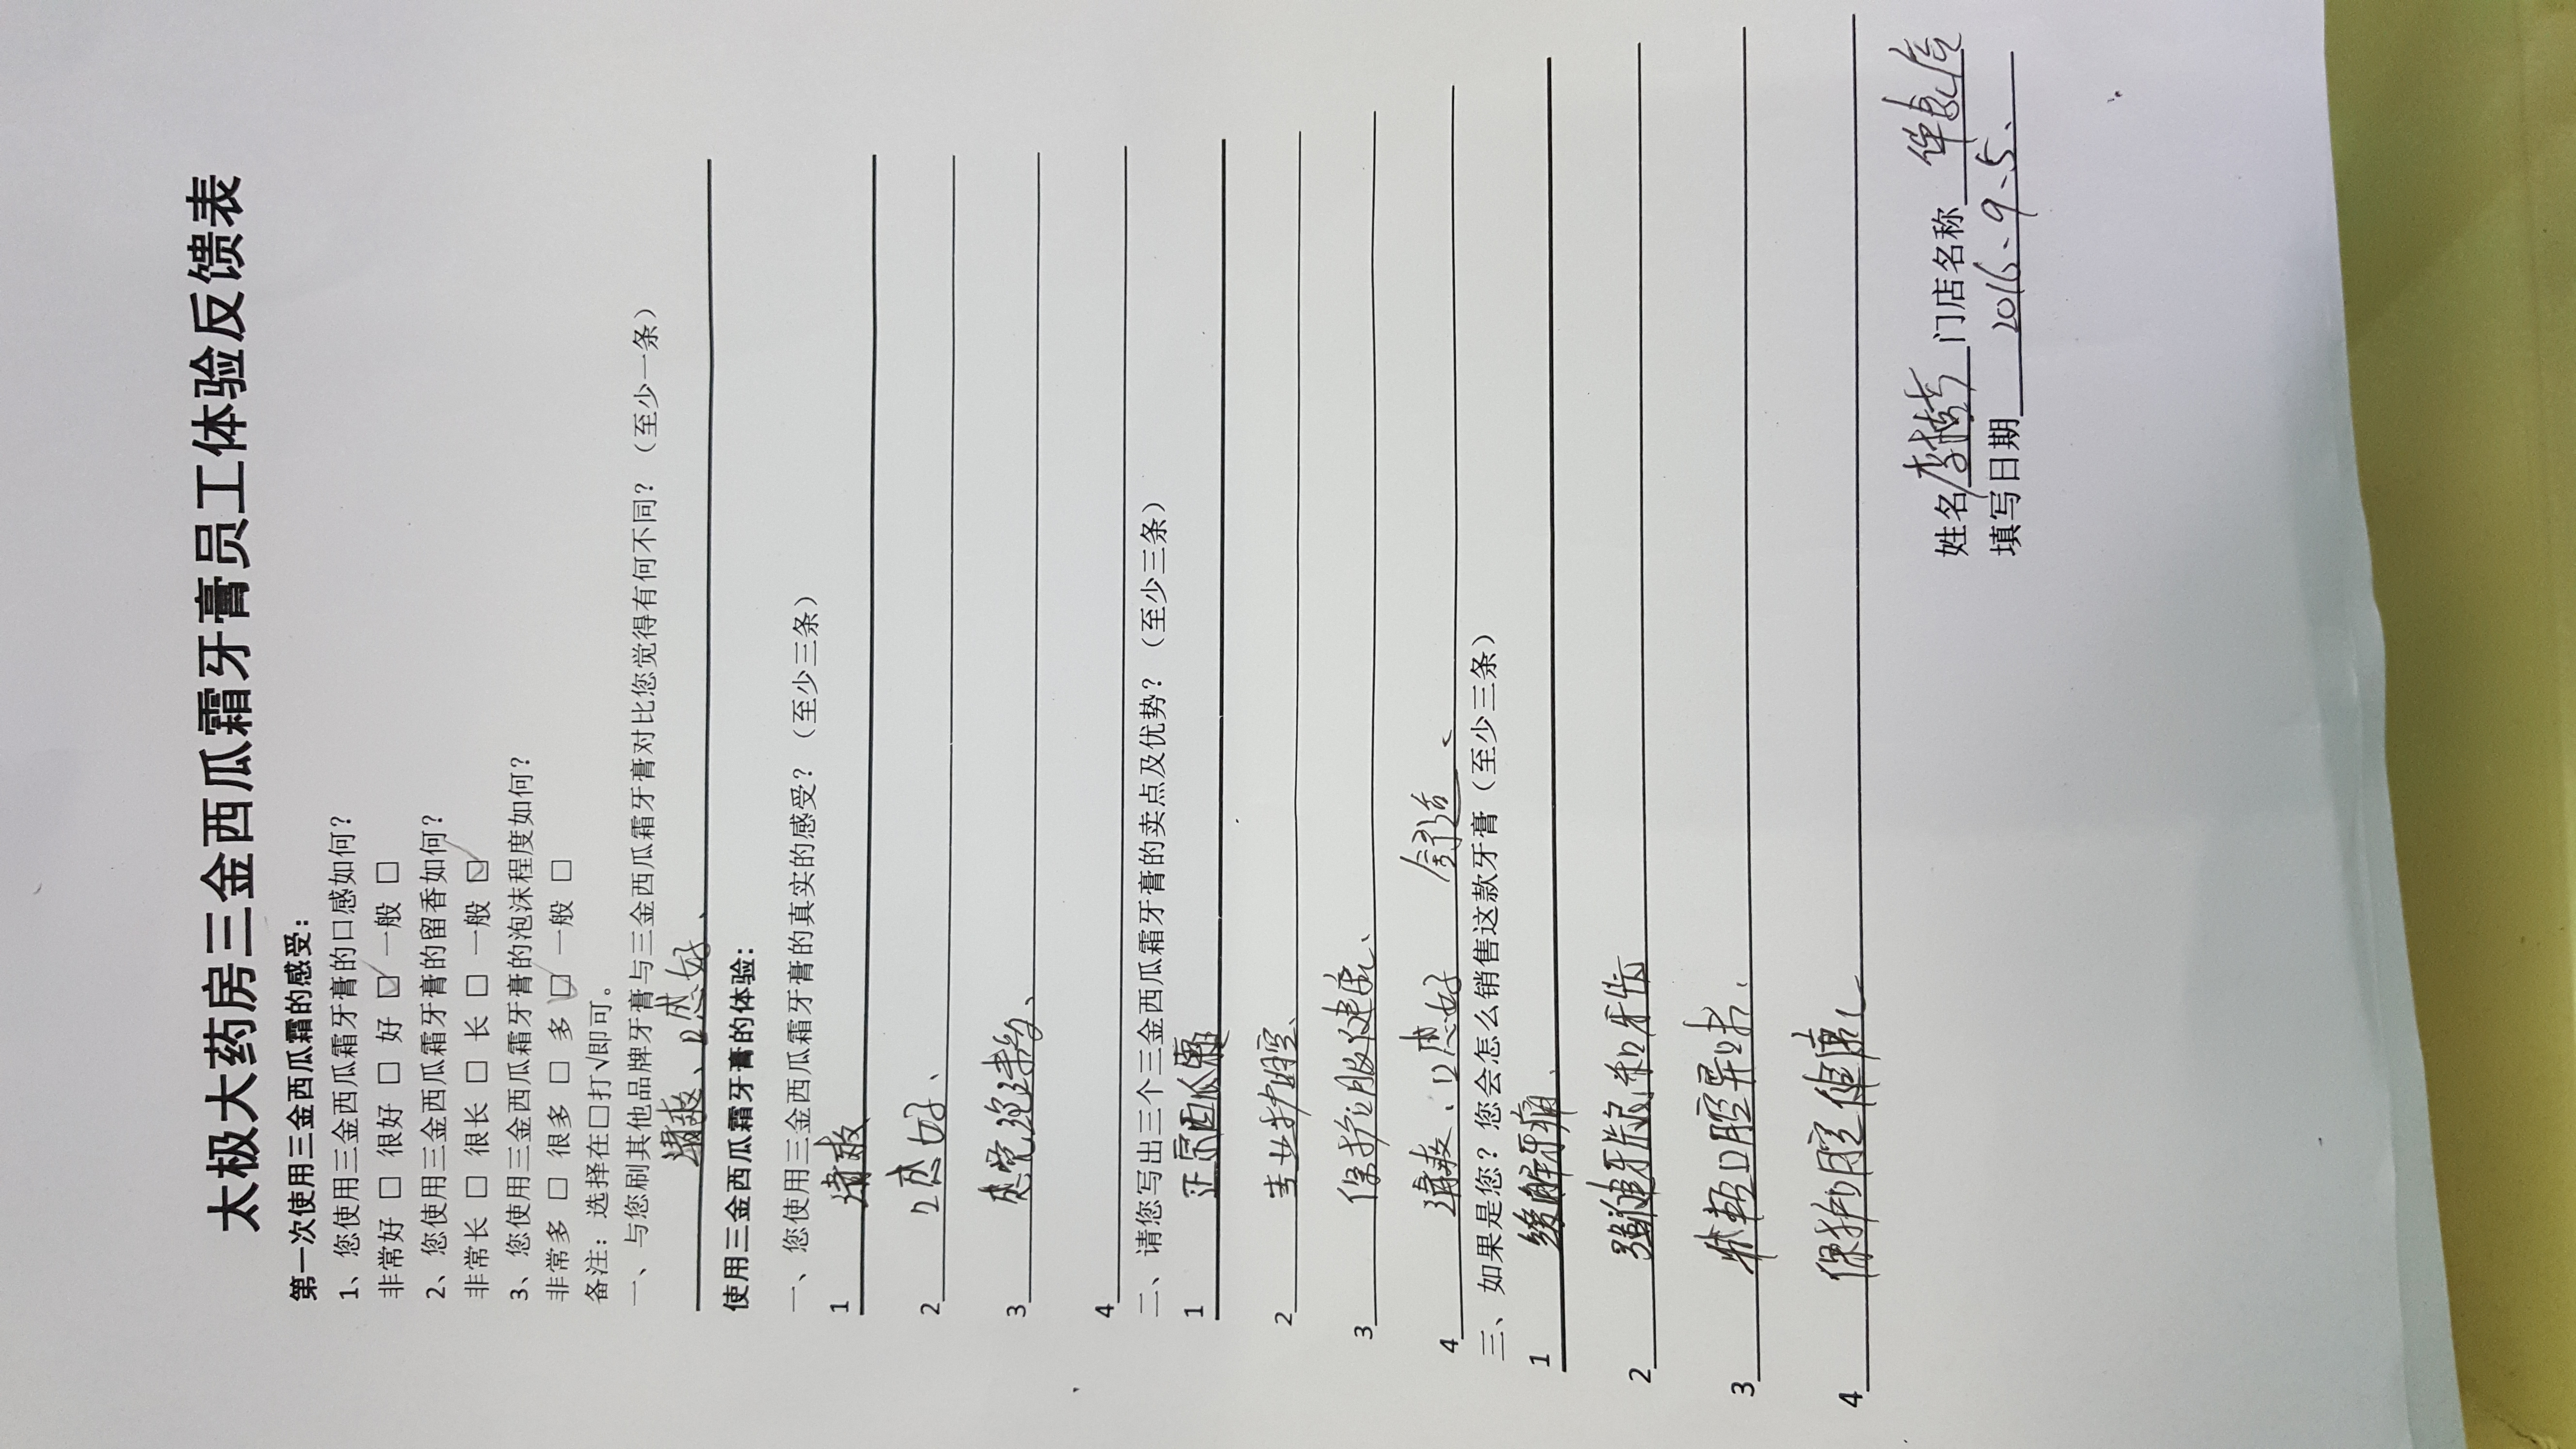 太极大药房三金西瓜霜牙膏员工体验反馈表
第一次使用三金西瓜霜的感受：
1、您使用三金西瓜霜牙膏的口感如何？
非常好 □ 很好 □ 好 ☑ 一般 □
2、您使用三金西瓜霜牙膏的留香如何？
非常长 □ 很长 □ 长 □ 一般 ☑
3、您使用三金西瓜霜牙膏的泡沫程度如何？
非常多 □ 很多 □ 多 ☑ 一般 □
备注：选择在□打√即可。
一、与您刷其他品牌牙膏与三金西瓜霜牙膏对比您觉得有何不同？（至少一条）
清爽、口感好、
使用三金西瓜霜牙膏的体验：
一、您使用三金西瓜霜牙膏的真实的感受？（至少三条）
1 清爽
2 口感好、
3 感觉
4
二、请您写出三个三金西瓜霜牙膏的卖点及优势？（至少三条）
1 正宗西瓜霜
2 专业护腔、
3 保护口腔健康、
4 清爽、口感好
三、如果是您？您会怎么销售这款牙膏（至少三条）
1 缓解牙痛、
2 强健牙龈和牙齿
3 口腔异味、
4 保护口腔健康
姓名 李 门店名称
填写日期 2016、9、5、